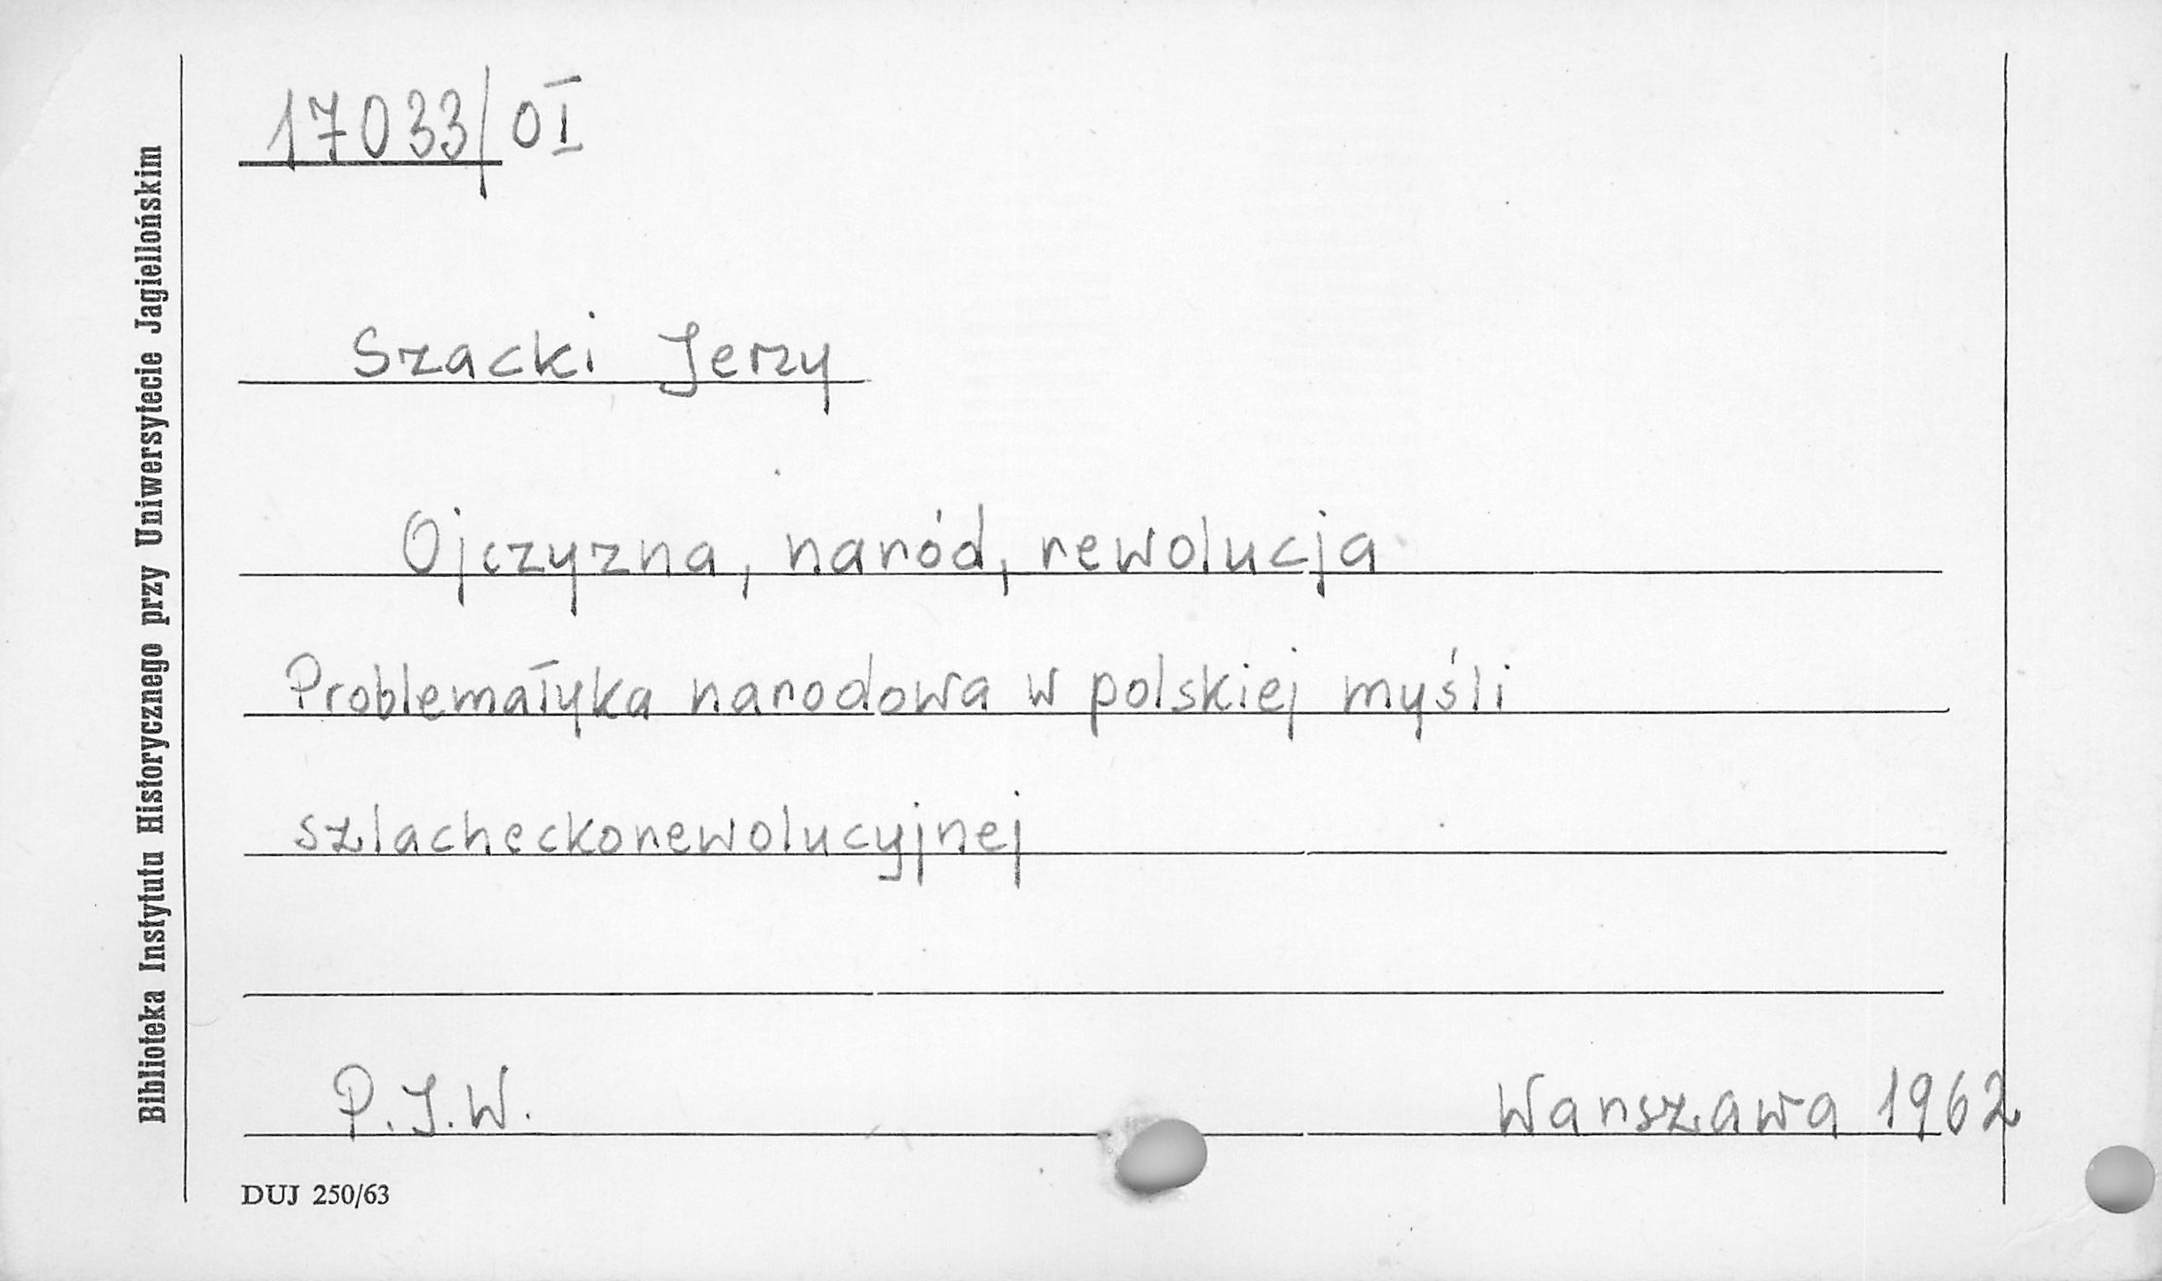 17033/OI
Szacki Jerzy
Ojczyzna, naród, rewolucja
Problematyka narodowa w polskiej myśli
szlacheckorewolucyjnej
P.I.W.
Warszawa 1962
DUJ 250/63
Biblioteka Instytutu Historycznego przy Uniwersytecie Jagiellońskim